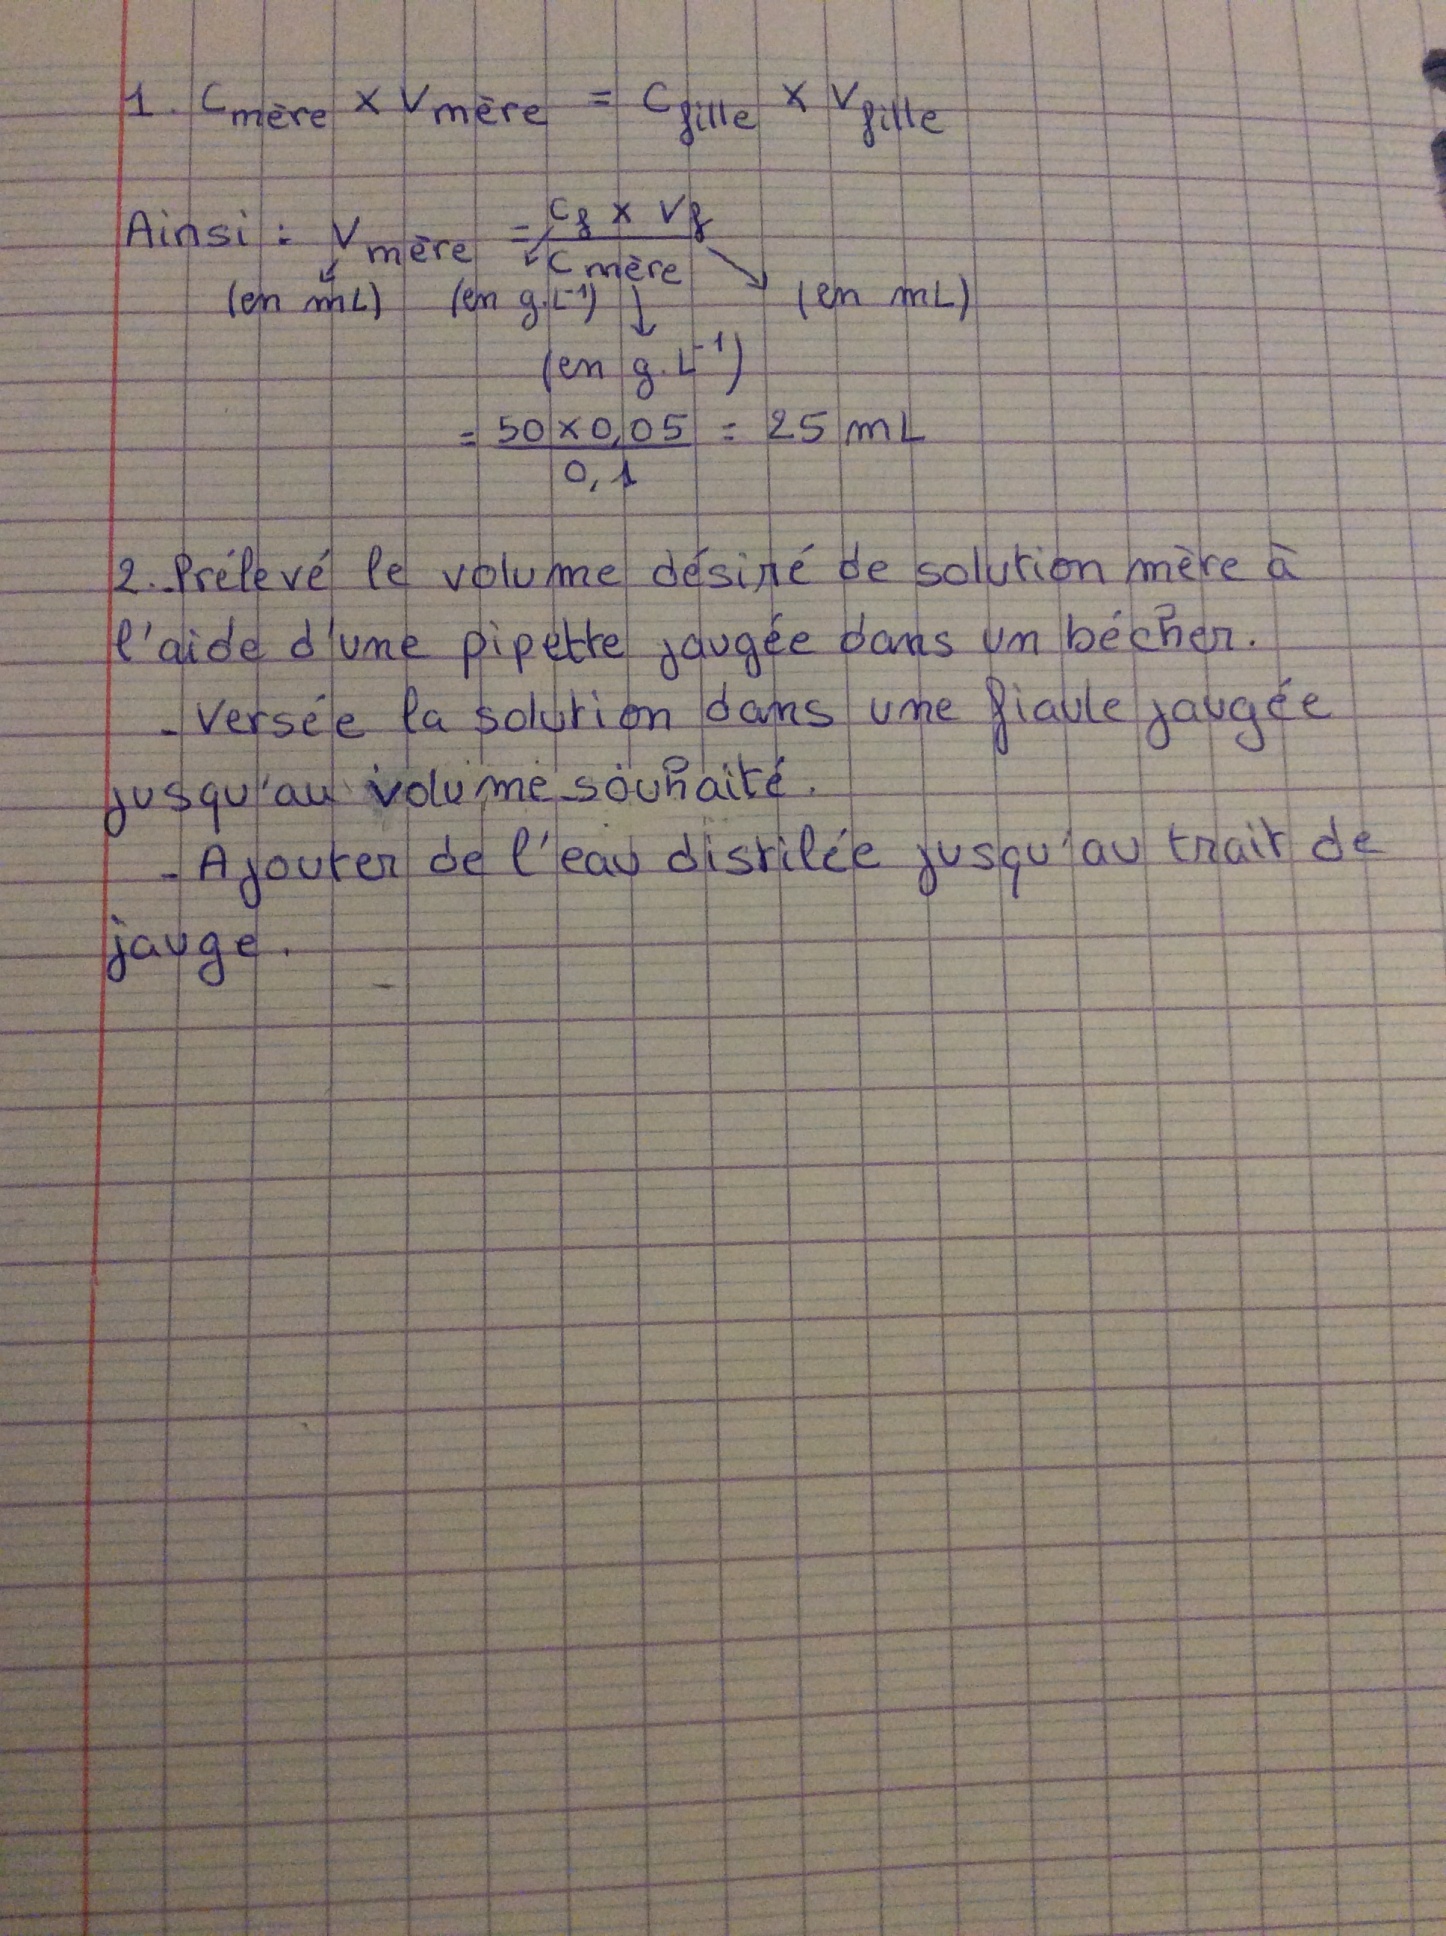 1. Cmère x Vmère = Cfille x Vfille
Ainsi : Vmère = Cf x Vf / Cmère
(en mL) (en g.L⁻¹) (en mL)
(en g.L⁻¹)
= 50 x 0,05 / 0,1 = 25 mL
2. Prélevé le volume désiré de solution mère à
l'aide d'une pipette jaugée dans un bécher.
- Versée la solution dans une fiaule jaugée
jusqu'au volume souhaité.
- Ajouter de l'eau distilée jusqu'au trait de
jauge.